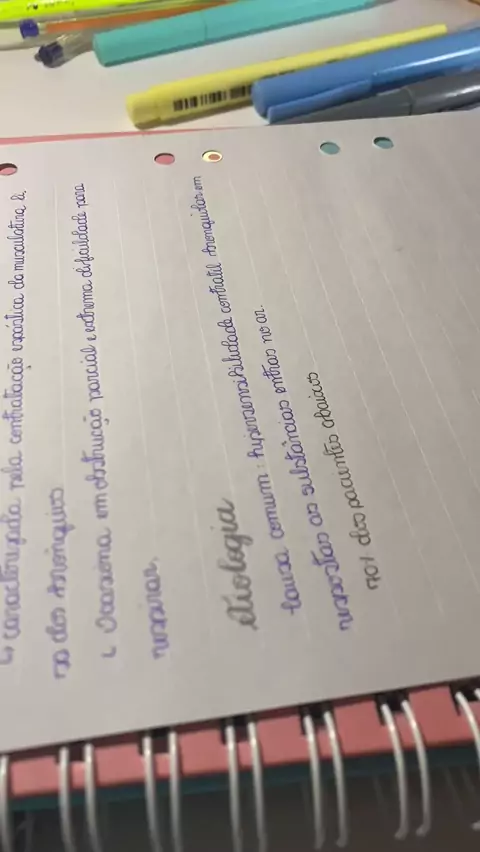 ↳ caracterizada pela contratação espástica da musculatura li
sa dos bronquios
↳ Ocasiona em obstrução parcial e extrema dificuldade para
respirar.
etiologia
Causa comum: hipersensibilidade contratil bronquitar em
respostas as substâncias entras no ar.
70% dos pacientes abaixos